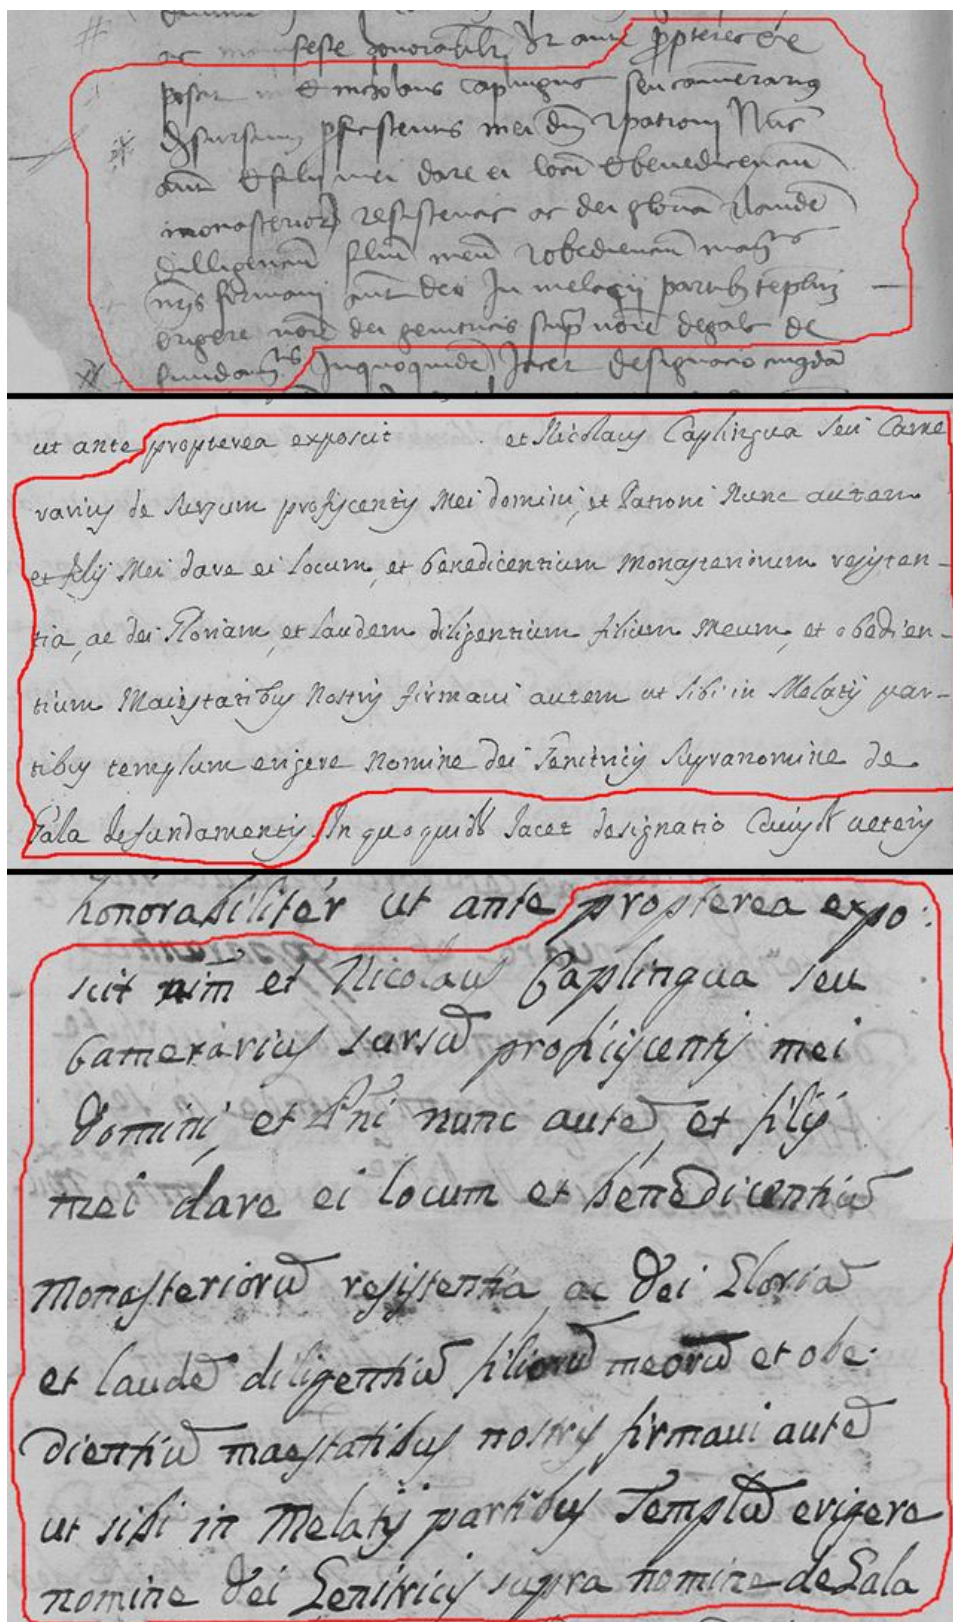 ac feste honorabilr ut ante propterea ex
poscit et nicolaus caplingua seu camerarius
mei dni et patroni Nunc
aut et filij mei dare ei locu et benedicenciu
monasterioru resistencia ac dei gloria et laude
diligenciu filiu meu et obedienciu
nris firmavi aut In melacij partib templu
erigere noie dei genitricis supra noie degala de
fundam In quoquide Jacet designacio cuiusda
ut ante propterea exposcit et Nicolaus Caplingua seu Came
rarius de sursum profiscentis Mei domini, et Patroni Nunc autem
et filij Mei dare ei locum, et benedicentium Monasteriorum resisten-
tia, ac dei Gloriam, et laudem diligentium filium Meum, et obedien-
tium Maiestatibus Nostris firmaui autem ut sibi in Melatij par-
tibus templum erigere Nomine dei Genitricis supranomine de
Gala de fundamentis In quo quid Jacet designatio Cuiusd ueteris
honorabilitér ut ante propterea expo:
scit et Nicolaus Caplingua seu
Camerarius sursū proficiscentis mei
Domini, et Pni nunc autē, et filij
mei dare ei locum et benedicentiū
Monasteriorū resistentia, ac Dei Gloriā
et laudē diligentiū filiorū meorū et obe:
dientiū maestatibus nostris firmaui autē
ut sibi in Melatij partibus Templū erigere
nomine Dei Genitricis supra nomine de Gala